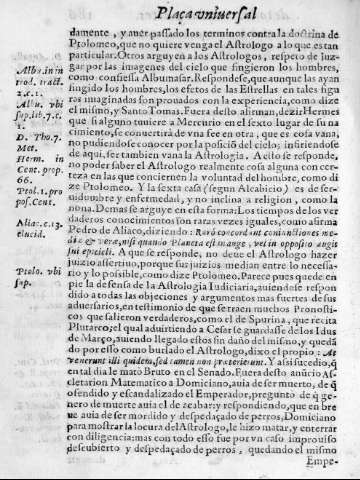 Plaça vniuersal
damente, y auer passado los terminos contra la doctrina de
Ptolomeo, que no quiere venga el Astrologo a lo que es tan
particular. Otros arguyen a los Astrologos, respeto de juz-
gar por las imagenes del cielo que fingieron los hombres,
como confiessa Albumasar. Respondese, que aunque las ayan
fingido los hombres, los efetos de las Estrellas en tales figu
ras imaginadas son prouados con la experiencia, como dize
el mismo, y Santo Tomas. Fuera desto afirman, dezir Hermes
que si alguno tuuiere a Mercurio en el sexto lugar de su na
cimiento, se conuertirà de vna fee en otra, que es cosa vana,
no pudiendose conocer por la posiciõ del cielo; infiriendose
de aqui, ser tambien vana la Astrologia. A esto se responde,
no poder saber el Astrologo realmente cosa alguna con cer-
teza en las que conciernen la voluntad del hombre, como di
ze Ptolomeo. Y la sexta casa (segun Alcabicio) es de ser-
uidumbre y enfermedad, y no inclina a religion, como la
nona. Demas se arguye en esta forma: Los tiempos de los ver
daderos conocimientos son raras vezes iguales, como afirma
Pedro de Aliaco, diziendo: Raró concordant coniunctiones me-
diæ & veræ, nisi quando Planeta est in auge, vel in opposito augis
sui epicicli. A que se responde, no deue el Astrologo hazer
juizio assertiuo, porque sus juizios median entre lo necessa-
rio y lo possible, como dize Ptolomeo. Parece pues quede en
pie la defensa de la Astrologia Iudiciaria, auiendose respon
dido a todas las objeciones y argumentos mas fuertes de sus
aduersarios, en testimonio de que se traen muchos Pronosti
cos que salieron verdaderos, como el de Spurina, que recita
Plutarco; el qual aduirtiendo a Cesar se guardasse de los Idus
de Março, auiendo llegado estos sin daño del mismo, y queda
do por esso como burlado el Astrologo, dixo el propio: At
venerunt illi quidem, sed tamen non præterierunt. Y assi sucedio, q̃
en tal dia le matò Bruto en el Senado. Fuera desto anũciò As-
cletarion Matematico a Domiciano, auia de ser muerto, de q̃
ofendido y escandalizado el Emperador, pregunto de q̃ ge-
nero de muerte auia el de acabar; y respondiendo, que en bre
ue auia de ser mordido y despedaçado de perros, Domiciano
para mostrar la locura del Astrologo, le hizo matar, y enterrar
con diligencia: mas con todo esso fue por vn caso improuiso
descubierto y despedaçado de perros, quedando el mismo
Empe-
Alba. in in
trod. tract.
2. c. 1.
Albu. vbi
sup. lib. 7.
c. 1.
D. Tho. 7.
Met.
Herm. in
Cent. prop.
66.
Ptol. 1. pro
pos. Cent.
Aliac. c. 13.
elucid.
Ptolo. vbi
sup.